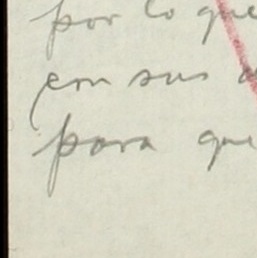 por lo que
em sus
para que